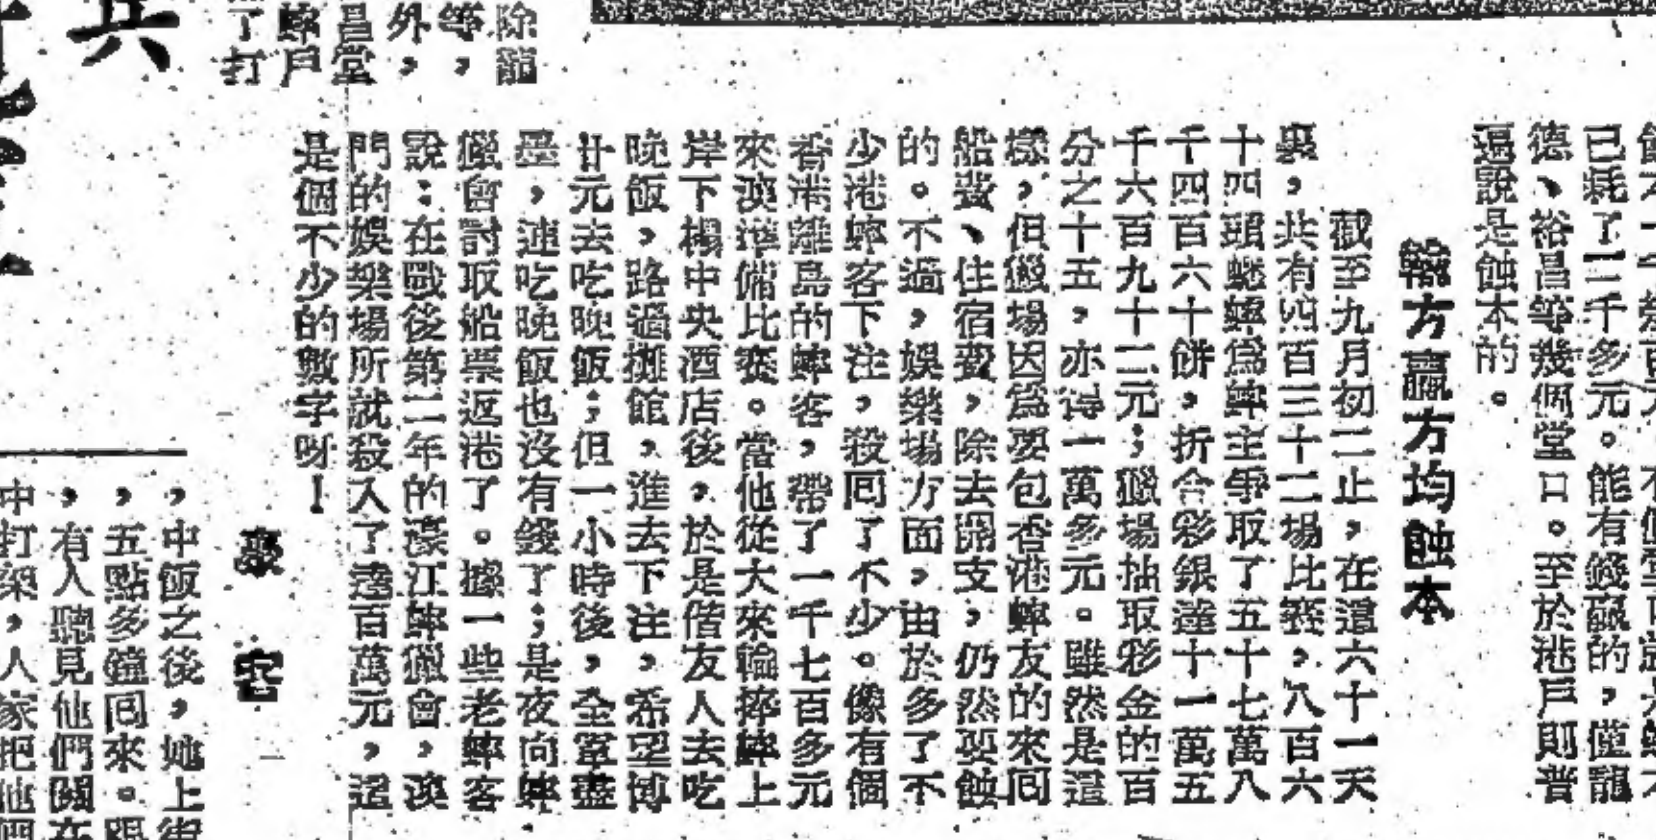 已耗了二千多元。能有錢贏的,僅龍
德、裕昌等幾個堂口。至於港戶則普
遍說是蝕本的。
輸方贏方均蝕本
截至九月初二止,在這六十一天
裏,共有四百三十二場比賽,八百六
十四頭蟋蟀爲蟀主爭取了五十七萬八
千四百六十餅,折合彩銀達十一萬五
千六百九十二元;獵場抽取彩金的百
分之十五,亦得一萬多元。雖然是這
樣,但獵場因爲要包香港蟀友的來回
船費、住宿費,除去開支,仍然要蝕
的。不過,娛樂場方面,由於多了不
少港蟀客下注,殺回了不少。像有個
香港離島的蟀客,帶了一千七百多元
來澳準備比賽。當他從大來輪捧蟀上
岸下榻中央酒店後,於是偕友人去吃
晚飯,路過攤館,進去下注,希望博
廿元去吃晚飯;但一小時後,全軍盡
墨,連吃晚飯也沒有錢了;是夜向蟀
獵會討取船票返港了。據一些老蟀客
說:在戰後第二年的濠江蟀獵會,澳
門的娛樂場所就殺入了達百萬元,這
是個不少的數字呀!
豪客
除龍
等,
外,
昌堂
蟀戶
了打
兵
,中飯之後,她上街
,五點多鐘回來。
,有人聽見他們關在
中打架,人家把他們